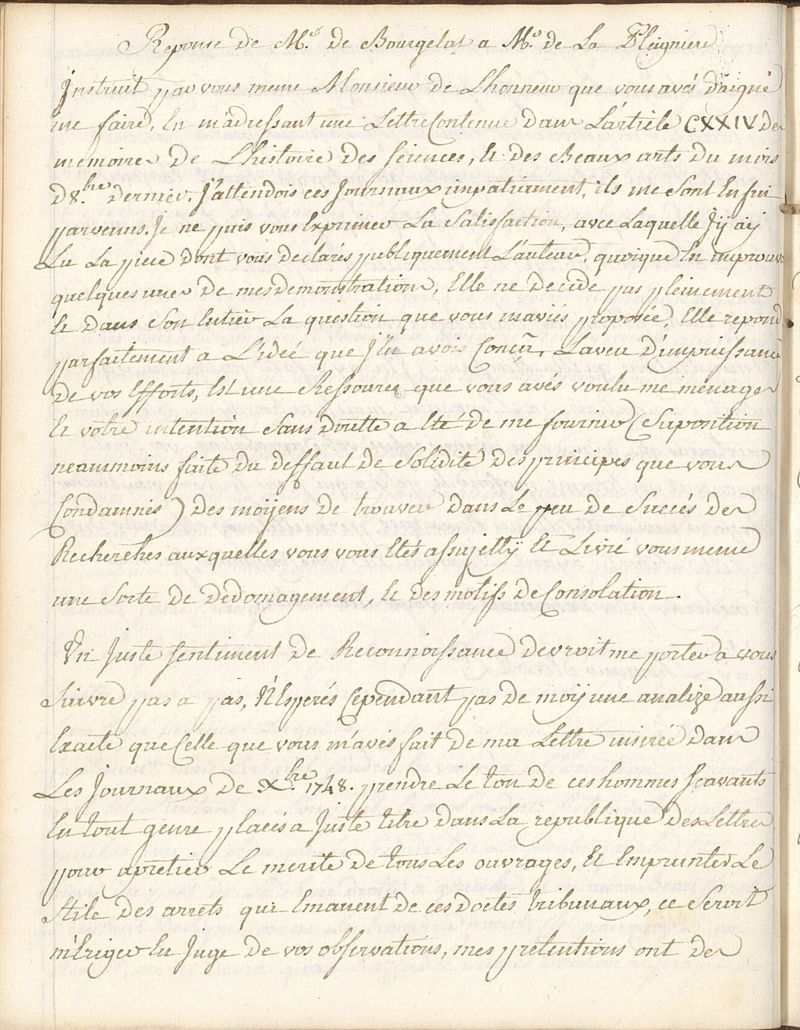 Reponse de Mr. de Bourgelat a Mr. de La Pleigniere
Instruit par vous meme Monsieur de Lhonneur que vous avés daigné
me faire, En m'adressant une Lettre Contenue dans L'article CXXIV des
memoires de L'histoire des sciences, & des Beaux arts du mois
d'8.bre dernier. J'attendois ces Journaux impatiament, ils me sont Enfin
parvenus. Je ne puis vous Exprimer La Satisfaction, avec Laquelle J'y ay
Lu La piece dont vous declarés publiquement L'auteur, quoique En improuvant
quelques unes de mes demonstrations, Elle ne decide pas pleinement
Et dans Son Entier La question que vous m'aviés proposée, Elle repond
parfaitement a L'ideé que J'En avois Conçü, L'aveu d'impuissance
de vos Efforts, Est une Ressource que vous avés voulu me menager
Et votre intention Sans doutte a Eté de me fournir (Suposition
neammoins faite du deffaut de Solidité des principes que vous
Condamnés) des moijens de trouver dans Le peu de Succés des
Recherches auxquelles vous vous Etes assujetty Et Livré vous meme
une Sorte de dedomagement, & des motifs de Consolation.
Un Juste sentiment de Reconnoissance devroit me porter a vous
Suivre pas a pas, N'Esperés Cependant pas de moy une analize aussi
Exacte que Celle que vous m'avés fait de ma Lettre inserée dans
Les Journaux de X.bre 1748. prendre Le ton de ces hommes scavants
En tout genre placés a Juste titre dans La republique des Lettres
pour apretier Le merite de tous Les ouvrages, Et Emprunter Le
Stile des arrets qui Emanent de ces doctes tribunaux, ce Seroit
m'Eriger En Juge de vos observations, mes pretentions ont des